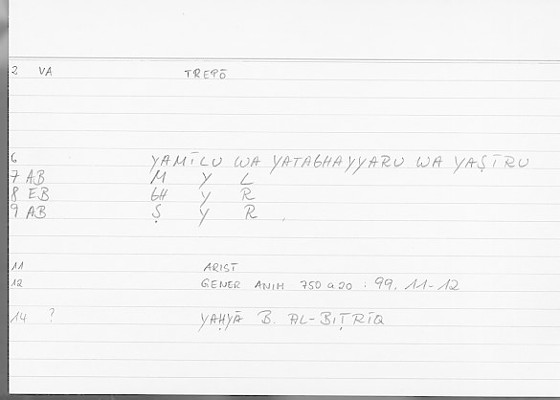 2 VA TREPŌ
6 YAMĪLU WA YATAGHAYYARU WA YAṢĪRU
7 AB M Y L
8 EB GH Y R
9 AB Ṣ Y R
11 ARIST
12 GENER ANIM 750 a 20 : 99, 11-12
14 ? YAḤYĀ B. AL-BIṬRĪQ